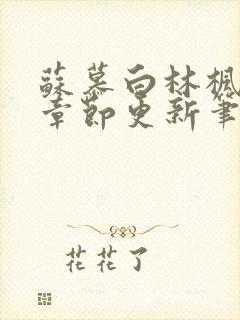 蘇慕白林楓
章節更新筆
花花了